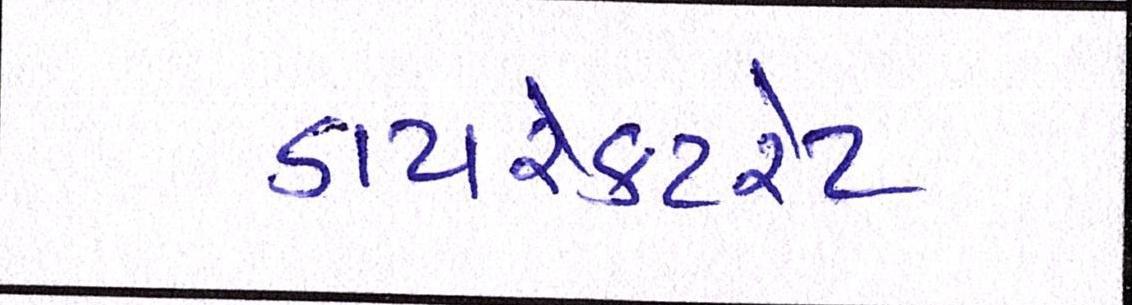 ડાયરેકટરેટ